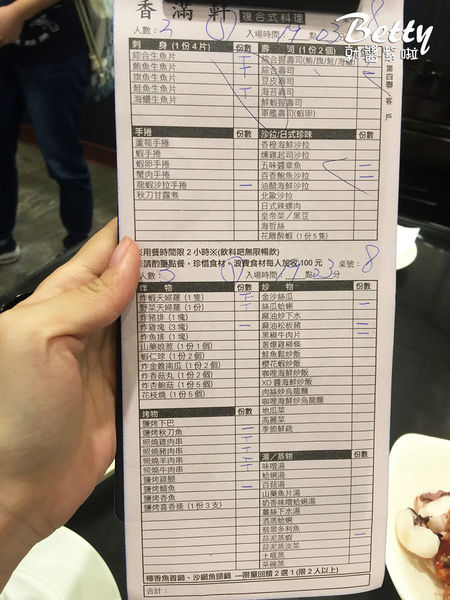 香滿軒 複合式料理
Betty
就醬紫啦
人數：3 入場時間：19 點 03 分 8
第四聯/客戶
刺身（1份4片） 份數
綜合生魚片 一
鮪魚生魚片 一
旗魚生魚片
鮭魚生魚片 一
海鱺生魚片
壽司（1份2個） 份數
綜合握壽司(鮪/旗/鮭/海)
綜合壽司 二
豆皮壽司
海苔壽司
鮮蝦握壽司
軍艦壽司(蝦卵)
手捲 份數
蘆筍手捲
蝦手捲
蝦卵手捲
蟹肉手捲
龍蝦沙拉手捲 一
秋刀甘露煮
沙拉/日式珍味 份數
香橙海鮮沙拉
燻雞起司沙拉
五味醬章魚 二
百香鮑魚沙拉 二
油醋海鮮沙拉 一
北歐沙拉
日式辣螺肉
皇帝菜／黑豆
海哲絲
花雕醉蝦（1份5隻）
※用餐時間限 2 小時※(飲料吧無限暢飲)
※請酌量點餐，珍惜食材、浪費食材每人加收 100 元
人數：3 入場時間：19 03 分 桌號：8
炸物 份數
炸蝦天婦羅（1隻） 一
野菜天婦羅（1份） 一
炸豬排（1塊）
炸雞塊（3塊） 一
炸魚排（1塊）
山藥娘惹（1份1個）
蝦仁球（1份2個）
炸金錐南瓜（1份2個）
炸香菇丸（1份2個）
炸杏鮑菇（1份5個）
花枝燒（1份5個）
炒物 份數
金沙絲瓜
絲瓜蛤蜊 一
麻油炒下水
麻油松板豬 二
黑椒牛肉片 一
蔥爆雞柳條
鮭魚鬆炒飯
櫻花蝦炒飯
咖哩海鮮炒飯
XO 醬海鮮炒飯
肉絲炒烏龍麵
咖哩海鮮炒烏龍麵
地瓜菜
高麗菜
季節鮮疏
烤物 份數
鹽烤下巴
鹽烤秋刀魚 一
照燒雞肉串 一
照燒豬肉串 一
照燒羊肉串 一
照燒牛肉串 一
鹽烤雞腿
鹽烤鯖魚 一
鹽烤香魚
鹽烤喜香逢（1份3支）
湯／蒸物 份數
味噌湯
蛤蜊湯
百菇湯
山藥魚片湯
奶香味噌蛤蜊湯
薑絲下水湯
酒蒸蛤蜊
翡翠多利魚
蒜泥蒸蝦 一
蒜泥蒸淡菜
土瓶蒸
茶碗蒸
椰香魚首鍋、沙鍋魚頭鍋 ---限量回饋 2 選 1（限 2 人以上）
合計：